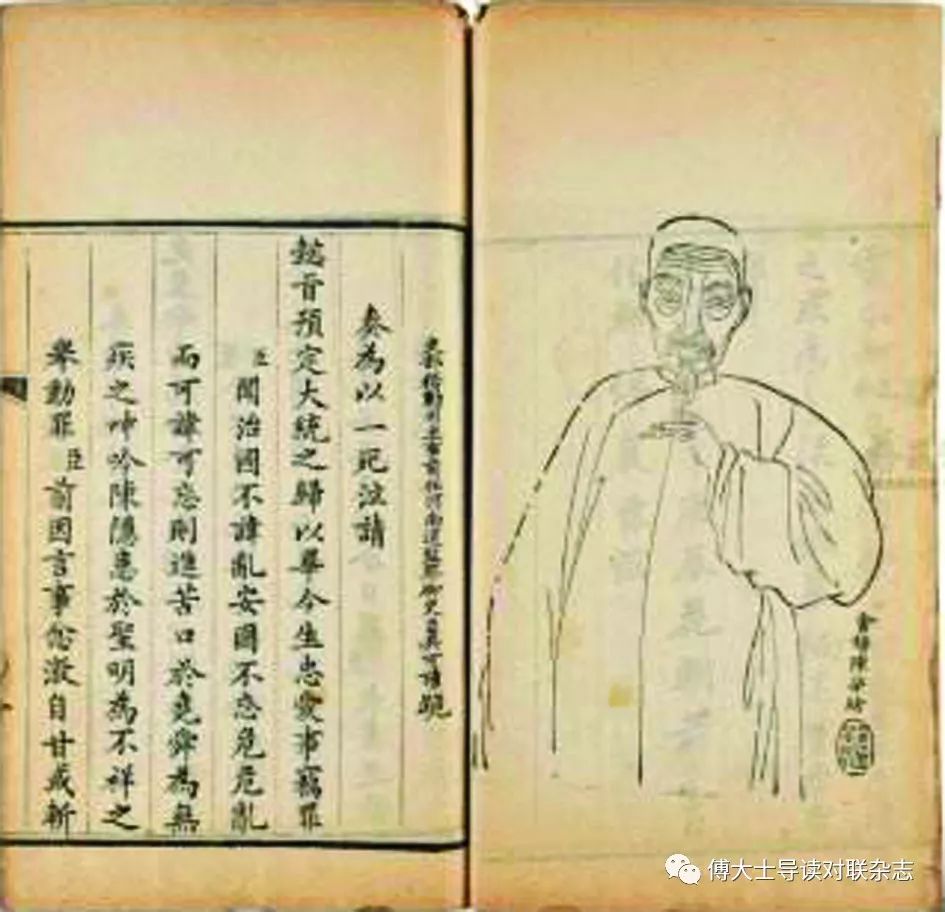 吏部稽勳司主事前任河南道監察御史臣吳可讀跪
奏為以一死泣請
懿旨預定大統之歸以畢今生忠愛事竊罪
臣聞治國不諱亂安國不忘危危亂
而可諱可忘則進苦口於堯舜為無
疾之呻吟陳隱患於聖明為不祥之
舉動罪臣前因言事忿激自甘或斬
會稽陳
傅大士导读对联杂志